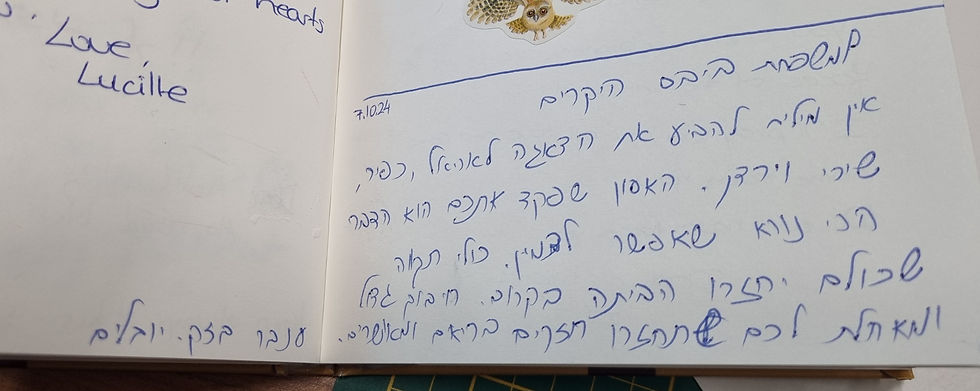 hearts
Love,
Lucille
7.10.24
למשפחת ביבס היקרים
אין מילים להביע את הדאגה לאריאל, כפיר,
שירי וירדן. האסון שפקד אתכם הוא הדבר
הכי נורא שאפשר לדמיין. כולי תקווה
שכולם יחזרו הביתה בקרוב. חיבוק גדול
ומאחלת לכם שתחזרו חזקים בריאים ומאושרים.
ענבר בזק. יובלים